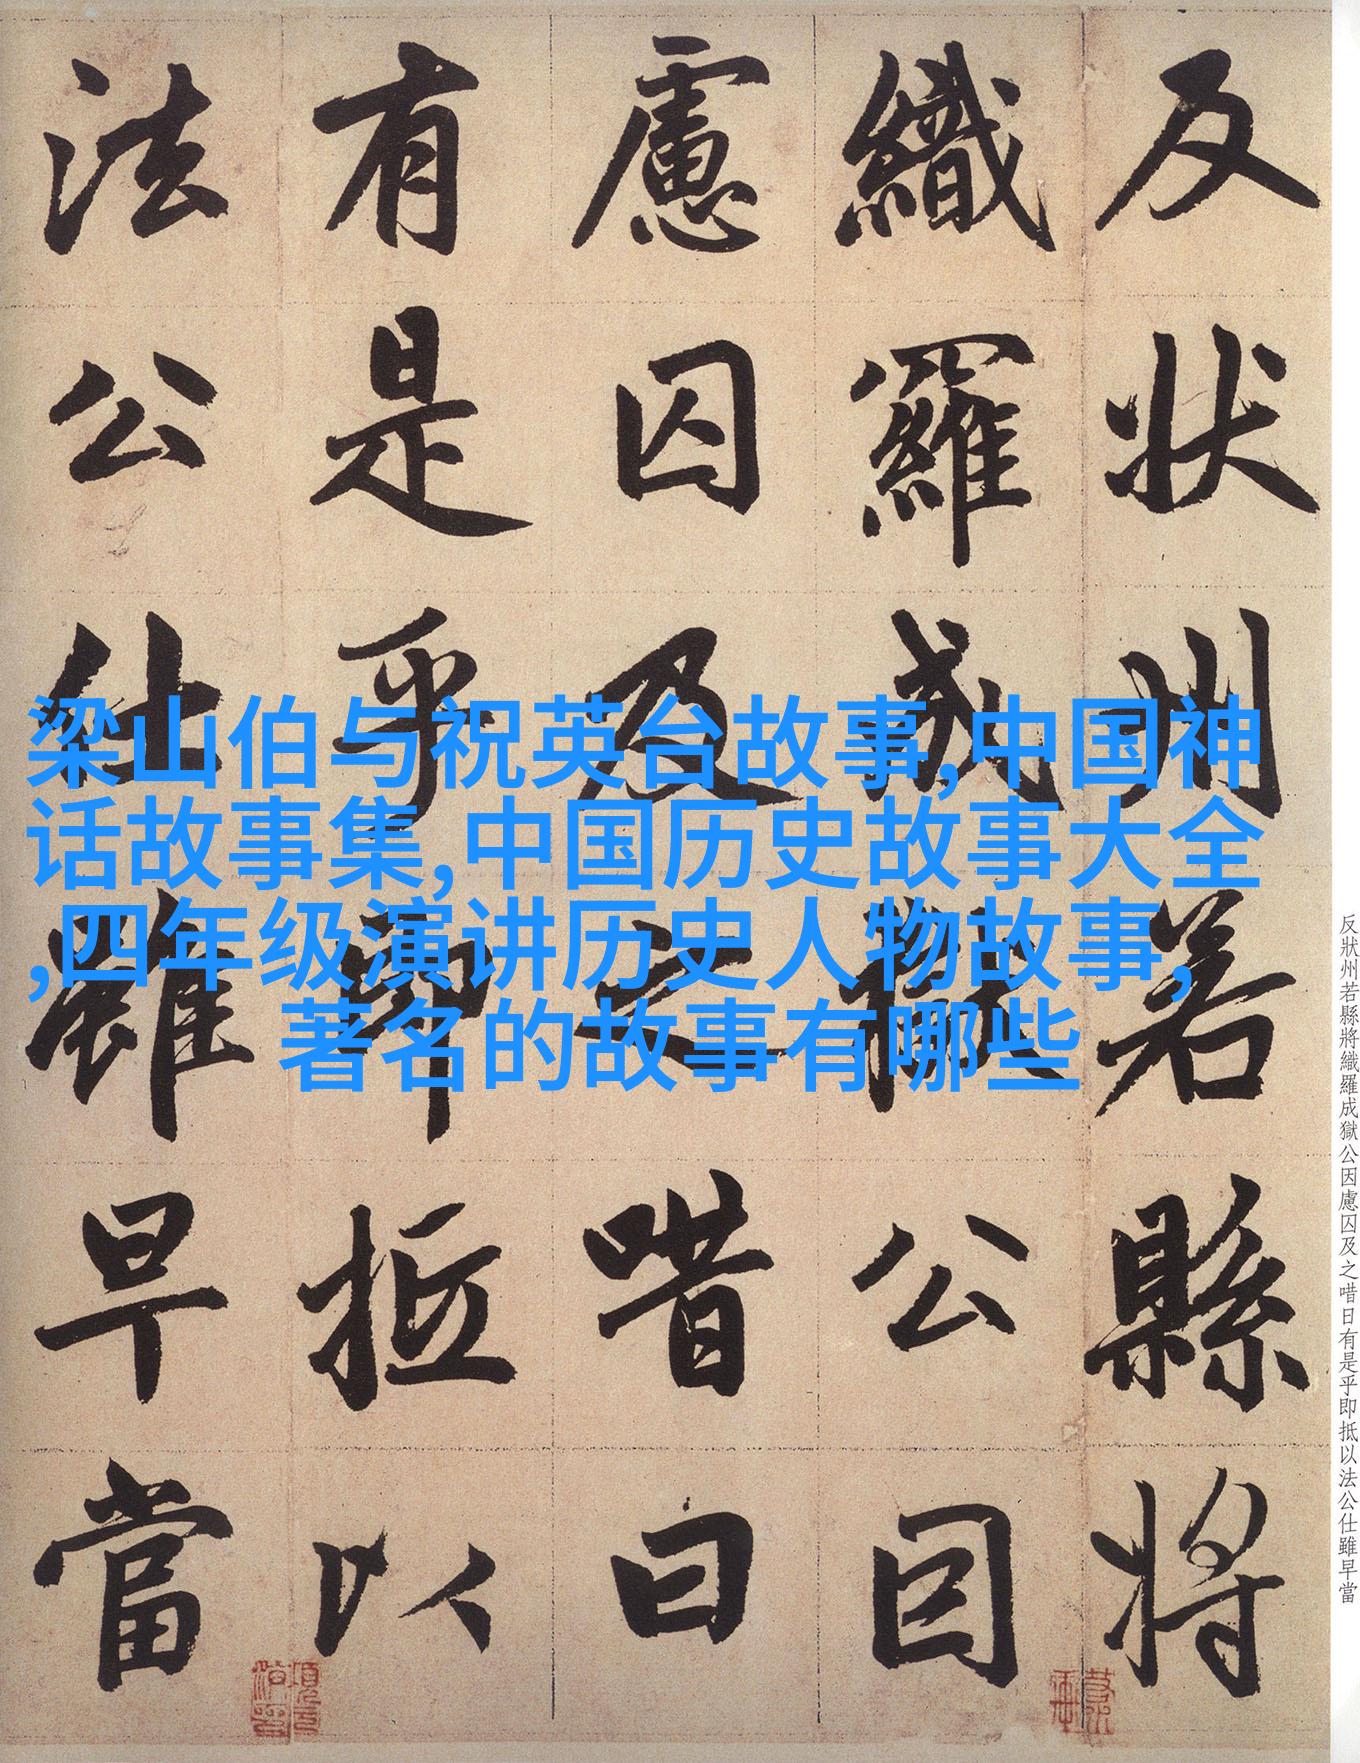 反状州若縣將
織羅成獄公因
慮囚及之唶曰
有是乎即抵以
法公仕雖早當
梁山伯与祝英台故事,中国神
话故事集,中国历史故事大全
,四年级演讲历史人物故事,
著名的故事有哪些
反狀州若縣將織羅成獄公因慮囚及之唶日有是乎即抵以法公仕雖早當